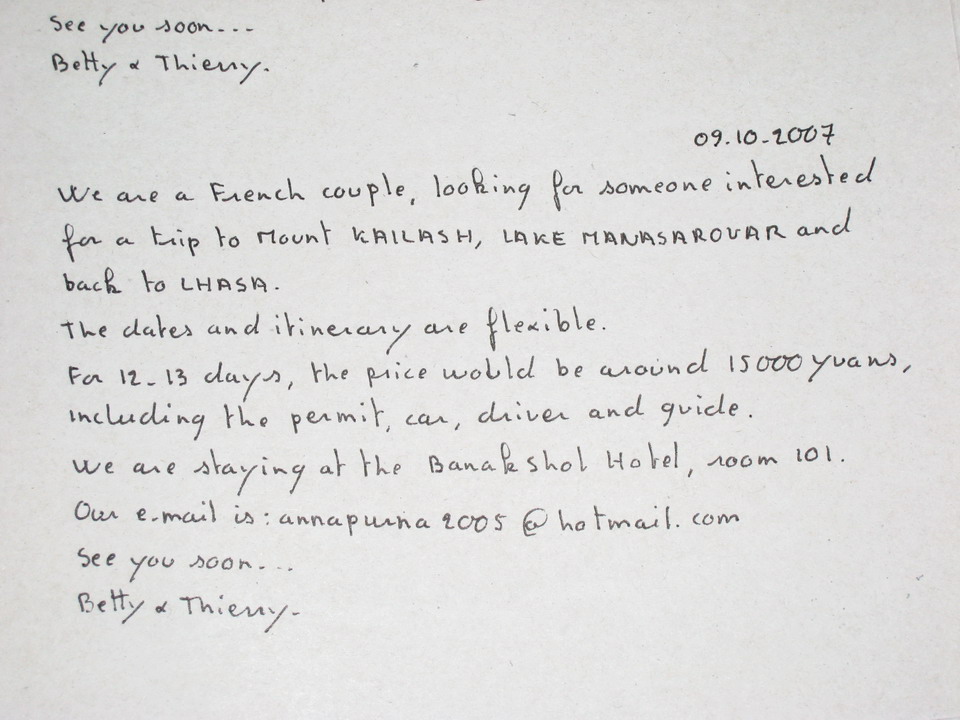 See you soon...
Betty & Thierry.
09.10.2007
We are a French couple, looking for someone interested
for a trip to Mount KAILASH, LAKE MANASAROVAR and
back to LHASA.
The dates and itinerary are flexible.
For 12-13 days, the price would be around 15000 yuans,
including the permit, car, driver and guide.
We are staying at the Banak Shol Hotel, room 101.
Our e.mail is : annapurna 2005 @ hotmail. com
See you soon...
Betty & Thierry.